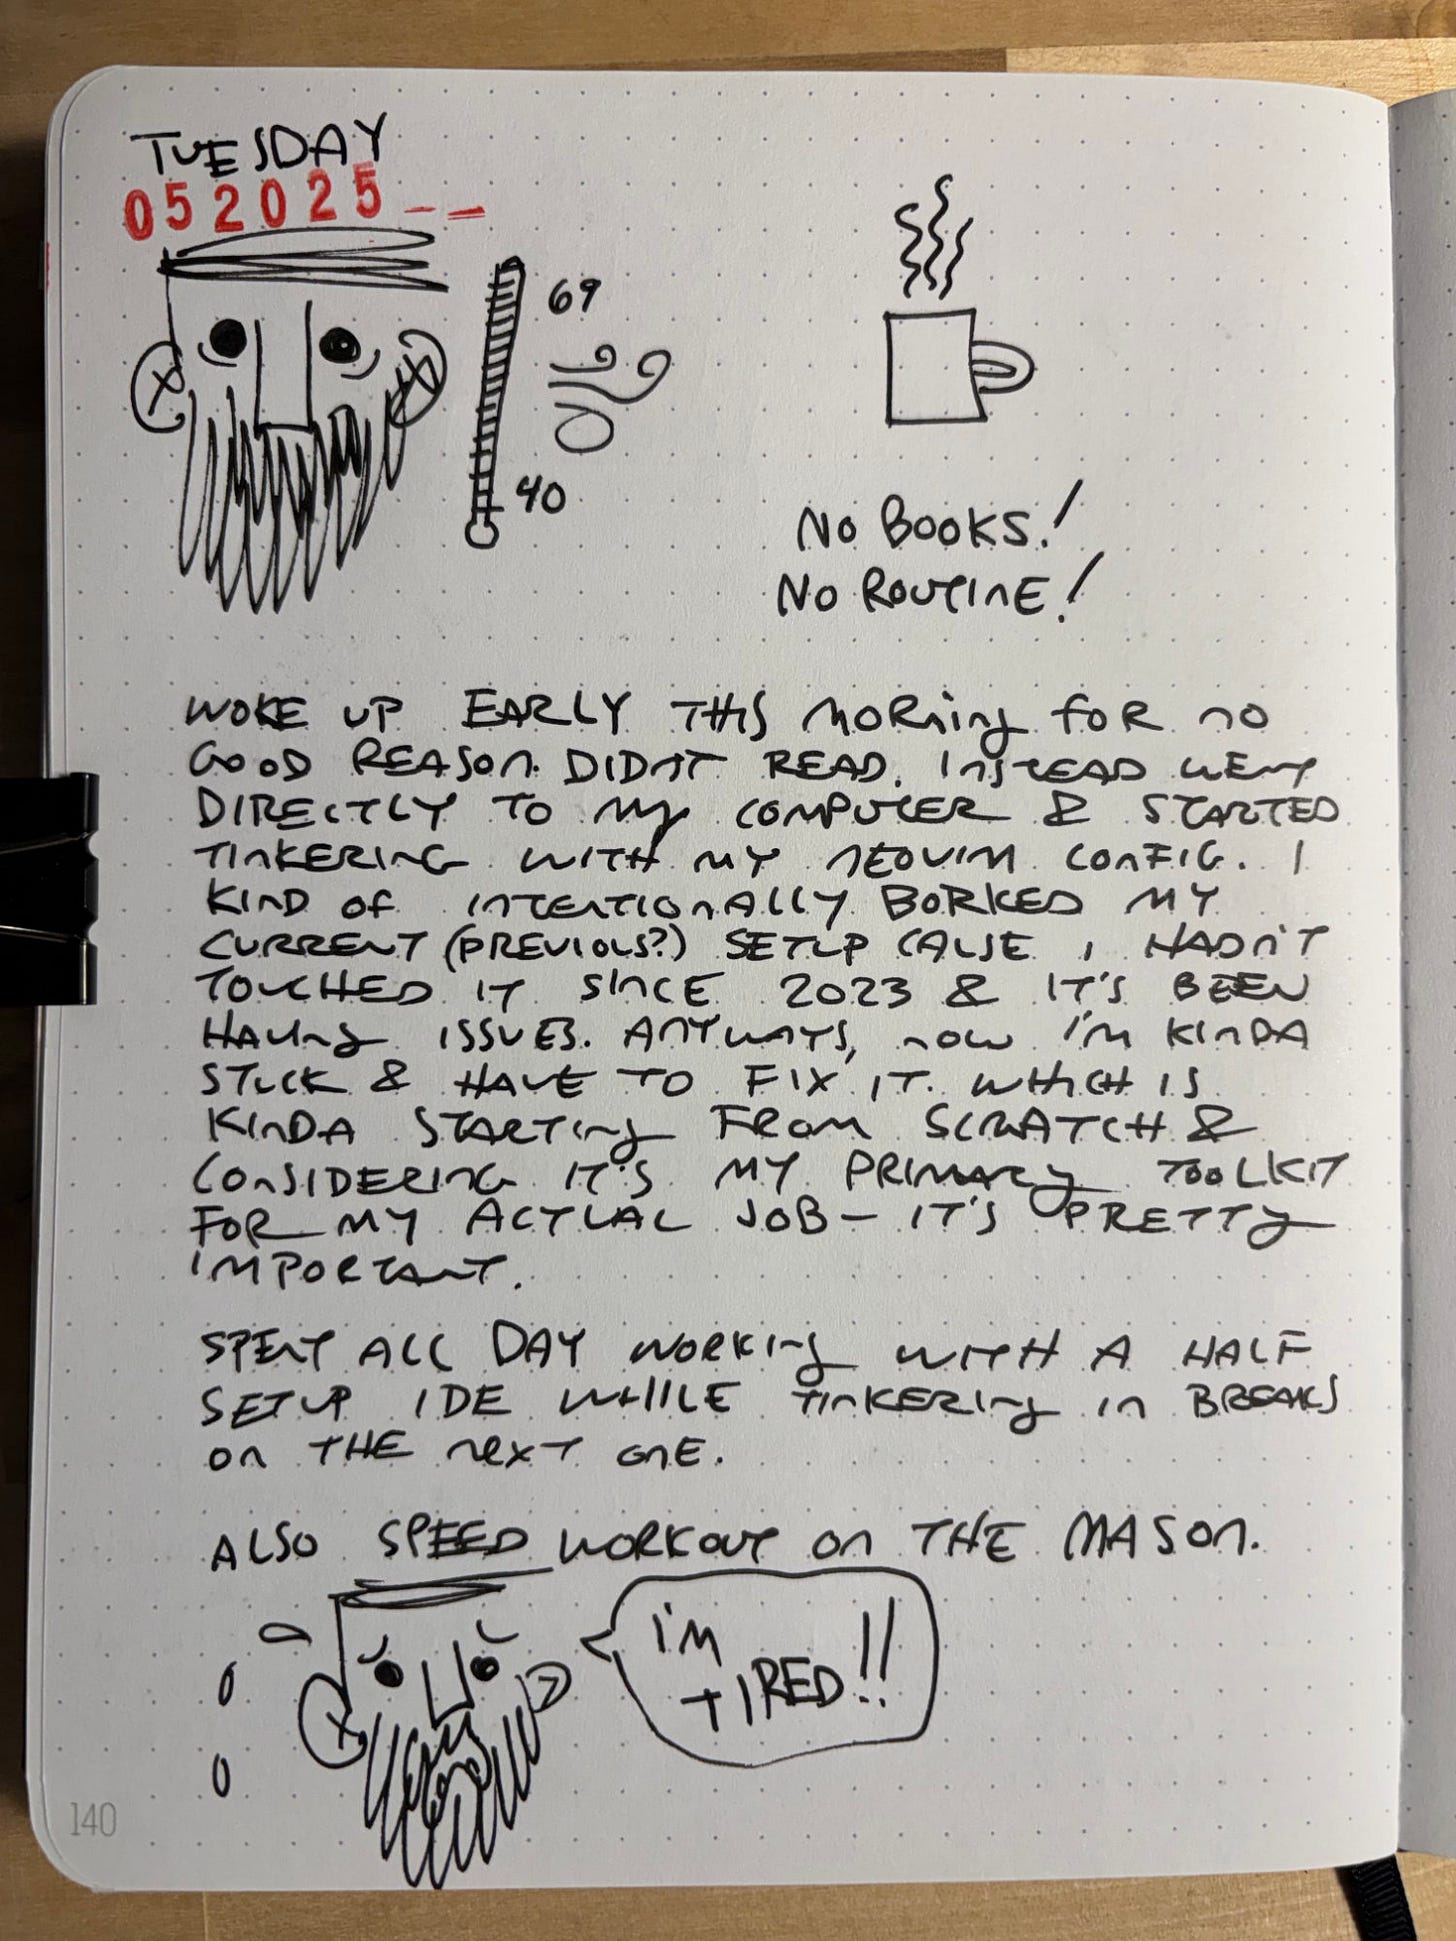 TUESDAY
052025__
69
40
NO BOOKS!
NO ROUTINE!
WOKE UP EARLY THIS MORNING FOR NO
GOOD REASON. DIDN'T READ. INSTEAD WENT
DIRECTLY TO MY COMPUTER & STARTED
TINKERING WITH MY NEOVIM CONFIG. I
KIND OF INTENTIONALLY BORKED MY
CURRENT (PREVIOUS?) SETUP CAUSE I HADN'T
TOUCHED IT SINCE 2023 & IT'S BEEN
HAVING ISSUES. ANYWAYS, NOW I'M KINDA
STUCK & HAVE TO FIX IT. WHICH IS
KINDA STARTING FROM SCRATCH &
CONSIDERING IT'S MY PRIMARY TOOLKIT
FOR MY ACTUAL JOB - IT'S PRETTY
IMPORTANT.
SPENT ALL DAY WORKING WITH A HALF
SETUP IDE WHILE TINKERING IN BREAKS
ON THE NEXT ONE.
ALSO SPEED WORKOUT ON THE MASON.
I'M
TIRED!!
140